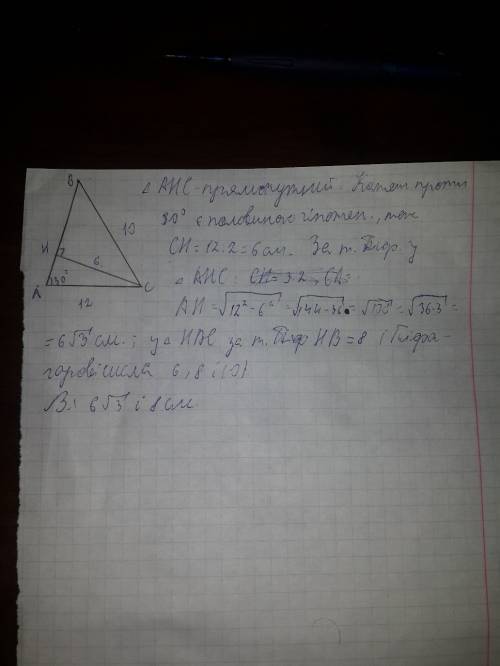 В
10
H
6
А
30°
C
12
△ АНС - прямокутний. Катет проти
30° є половиною гіпотен., тож
СН = 12:2 = 6 см. За т. Піф. у
△ АНС:
АН = √12² - 6² = √144 - 36 = √108 = √36·3 =
= 6√3 см. ; у △ НВС за т. Піф НВ = 8 (Піфа-
горові числа 6, 8 і 10)
В: 6√3 і 8 см